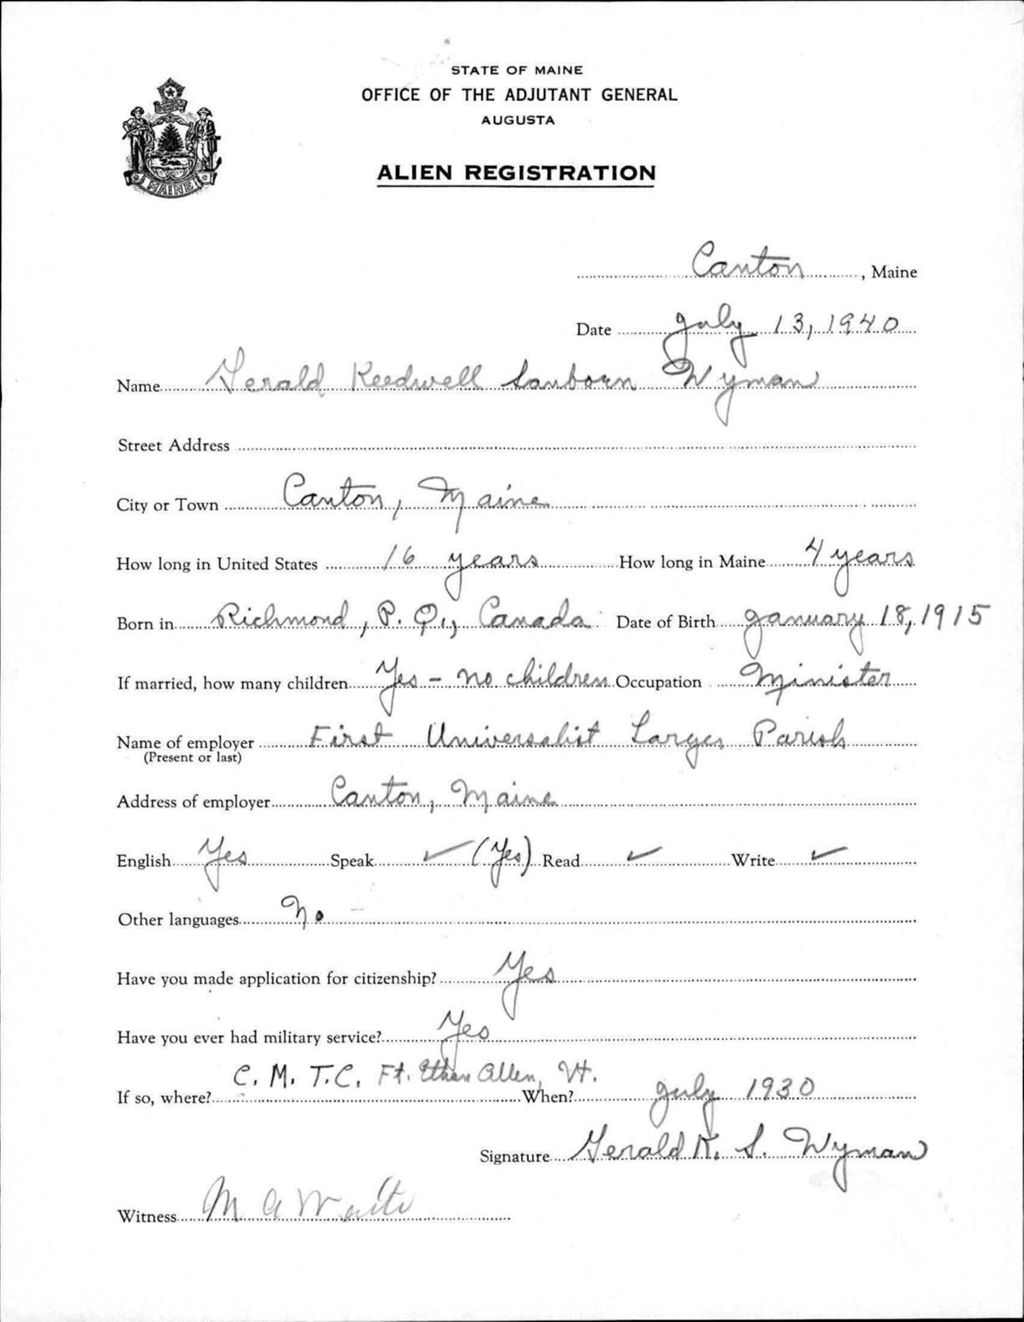 STATE OF MAINE
OFFICE OF THE ADJUTANT GENERAL
AUGUSTA
ALIEN REGISTRATION
MAINE
Canton, Maine
Date July 13, 1940
Name Gerald Keedwell Sanborn Wyman
Street Address
City or Town Canton, Maine
How long in United States 16 years How long in Maine 4 years
Born in Richmond, P. Q., Canada Date of Birth January 18, 1915
If married, how many children Yes - no children Occupation Minister
Name of employer First Universalist Larger Parish
(Present or last)
Address of employer Canton, Maine
English Yes Speak ✓ (Yes) Read ✓ Write ✓
Other languages No
Have you made application for citizenship? Yes
Have you ever had military service? Yes
If so, where? C. M. T. C. Ft. Ethan Allen, Vt. When? July 1930
Signature Gerald K. S. Wyman
Witness M A Waite